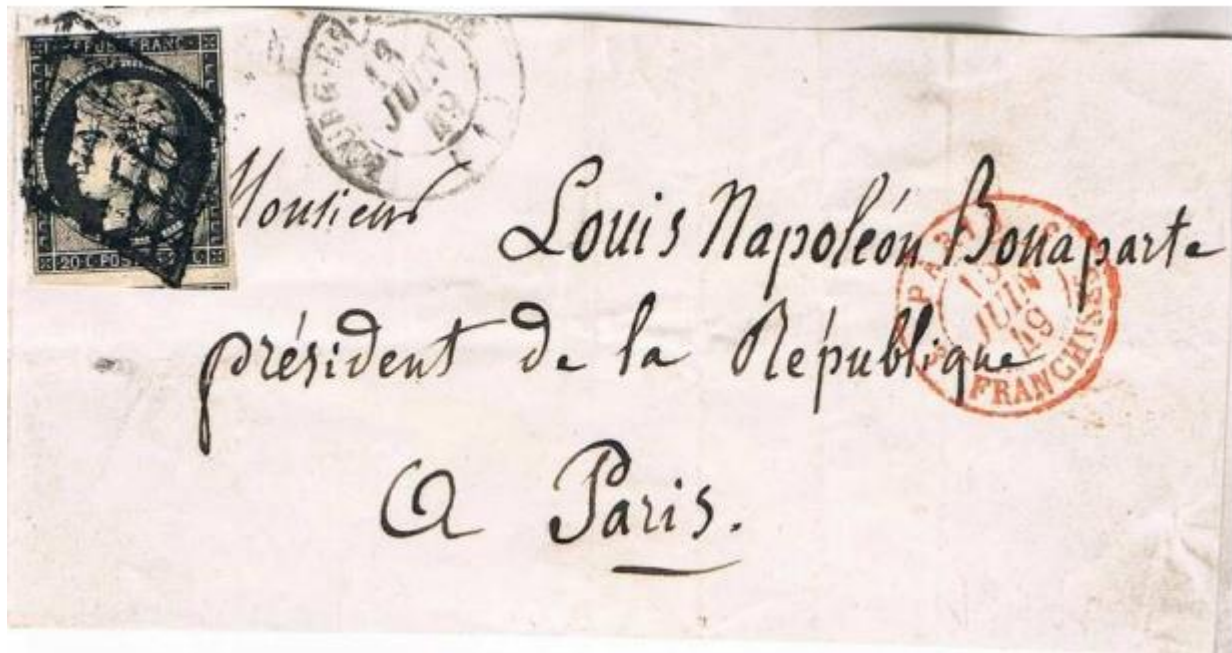 REPUB FRANC
20 C POSTE 20 C
JUIN
49
Monsieur
Louis Napoléon Bonaparte
président de la République
A Paris.
PARIS
JUIN
49
FRANCHISES